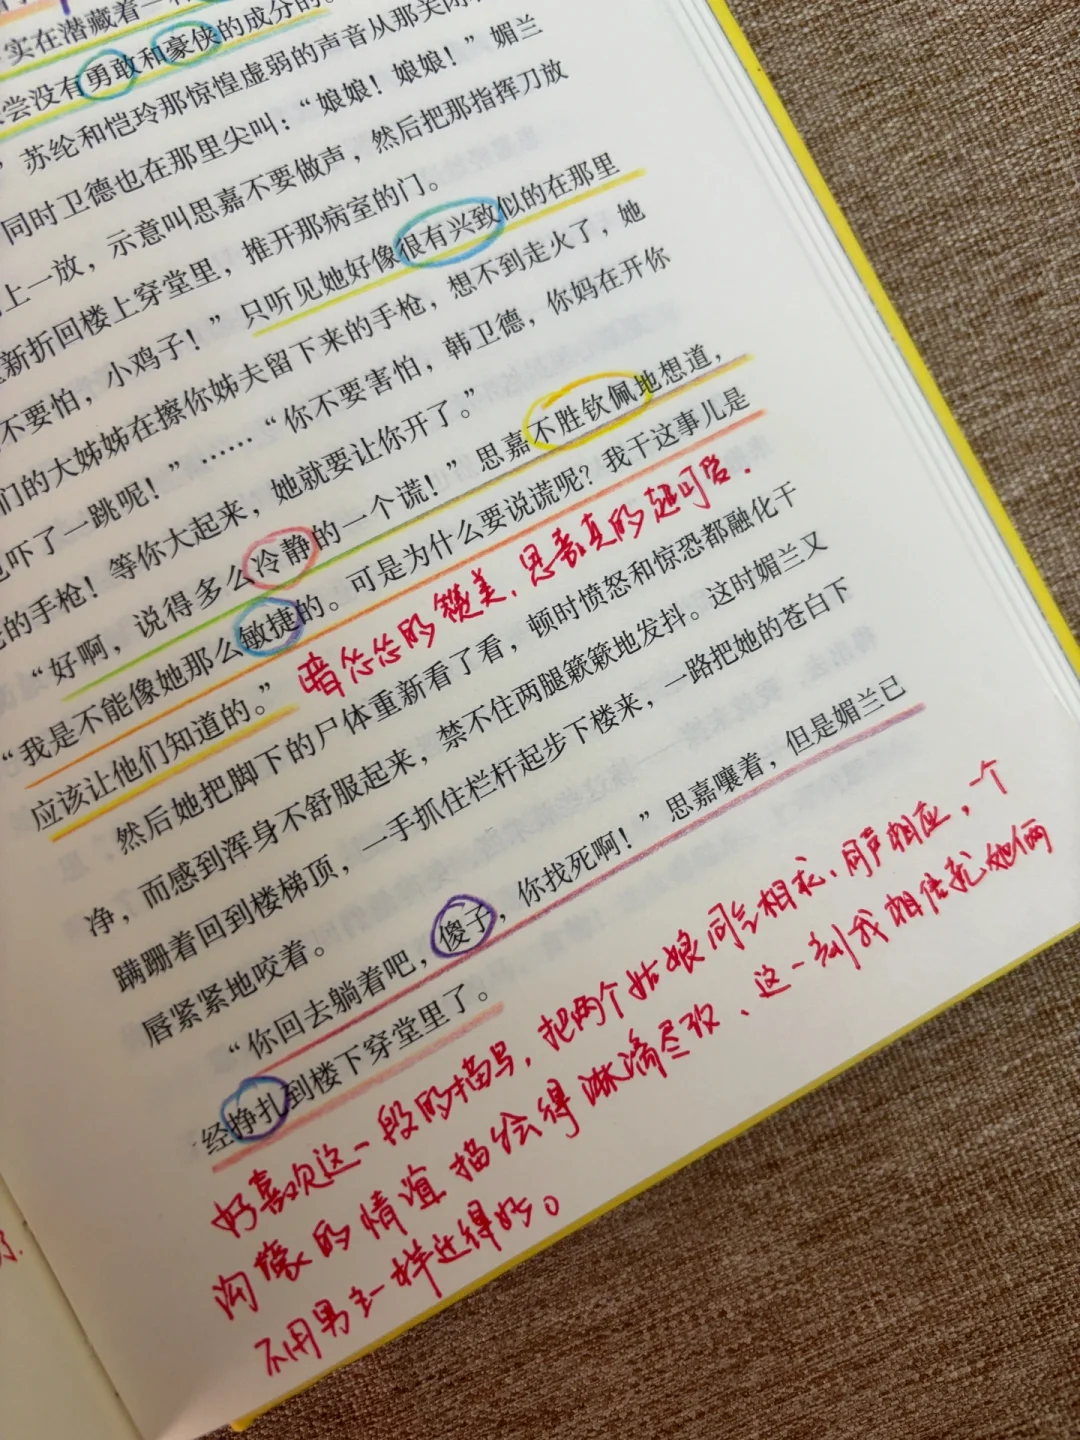 实在潜藏着一种
尝没有勇敢和豪侠的成分的。
苏纶和恺玲那惊惶虚弱的声音从那关闭
同时卫德也在那里尖叫：“娘娘！娘娘！”媚兰
上一放，示意叫思嘉不要做声，然后把那指挥刀放
新折回楼上穿堂里，推开那病室的门。
不要怕，小鸡子！”只听见她好像很有兴致似的在那里
们的大姊姊在擦你姊夫留下来的手枪，想不到走火了，她
吓了一跳呢！”……“你不要害怕，韩卫德，你妈在开你
的手枪！等你大起来，她就要让你开了。”
“好啊，说得多么冷静的一个谎！”思嘉不胜钦佩地想道，
“我是不能像她那么敏捷的。可是为什么要说谎呢？我干这事儿是
应该让他们知道的。”
暗怂怂的赞美，思嘉真的超可爱．
然后她把脚下的尸体重新看了看，顿时愤怒和惊恐都融化干
净，而感到浑身不舒服起来，禁不住两腿簌簌地发抖。这时媚兰又
蹒跚着回到楼梯顶，一手抓住栏杆起步下楼来，一路把她的苍白下
唇紧紧地咬着。
“你回去躺着吧，傻子，你找死啊！”思嘉嚷着，但是媚兰已
经挣扎到楼下穿堂里了。
好喜欢这一段的描写，把两个姑娘同气相求、同声相应，一个
的情谊描绘得淋漓尽致、这一刻我相信就她俩
不用男主一样过得好。